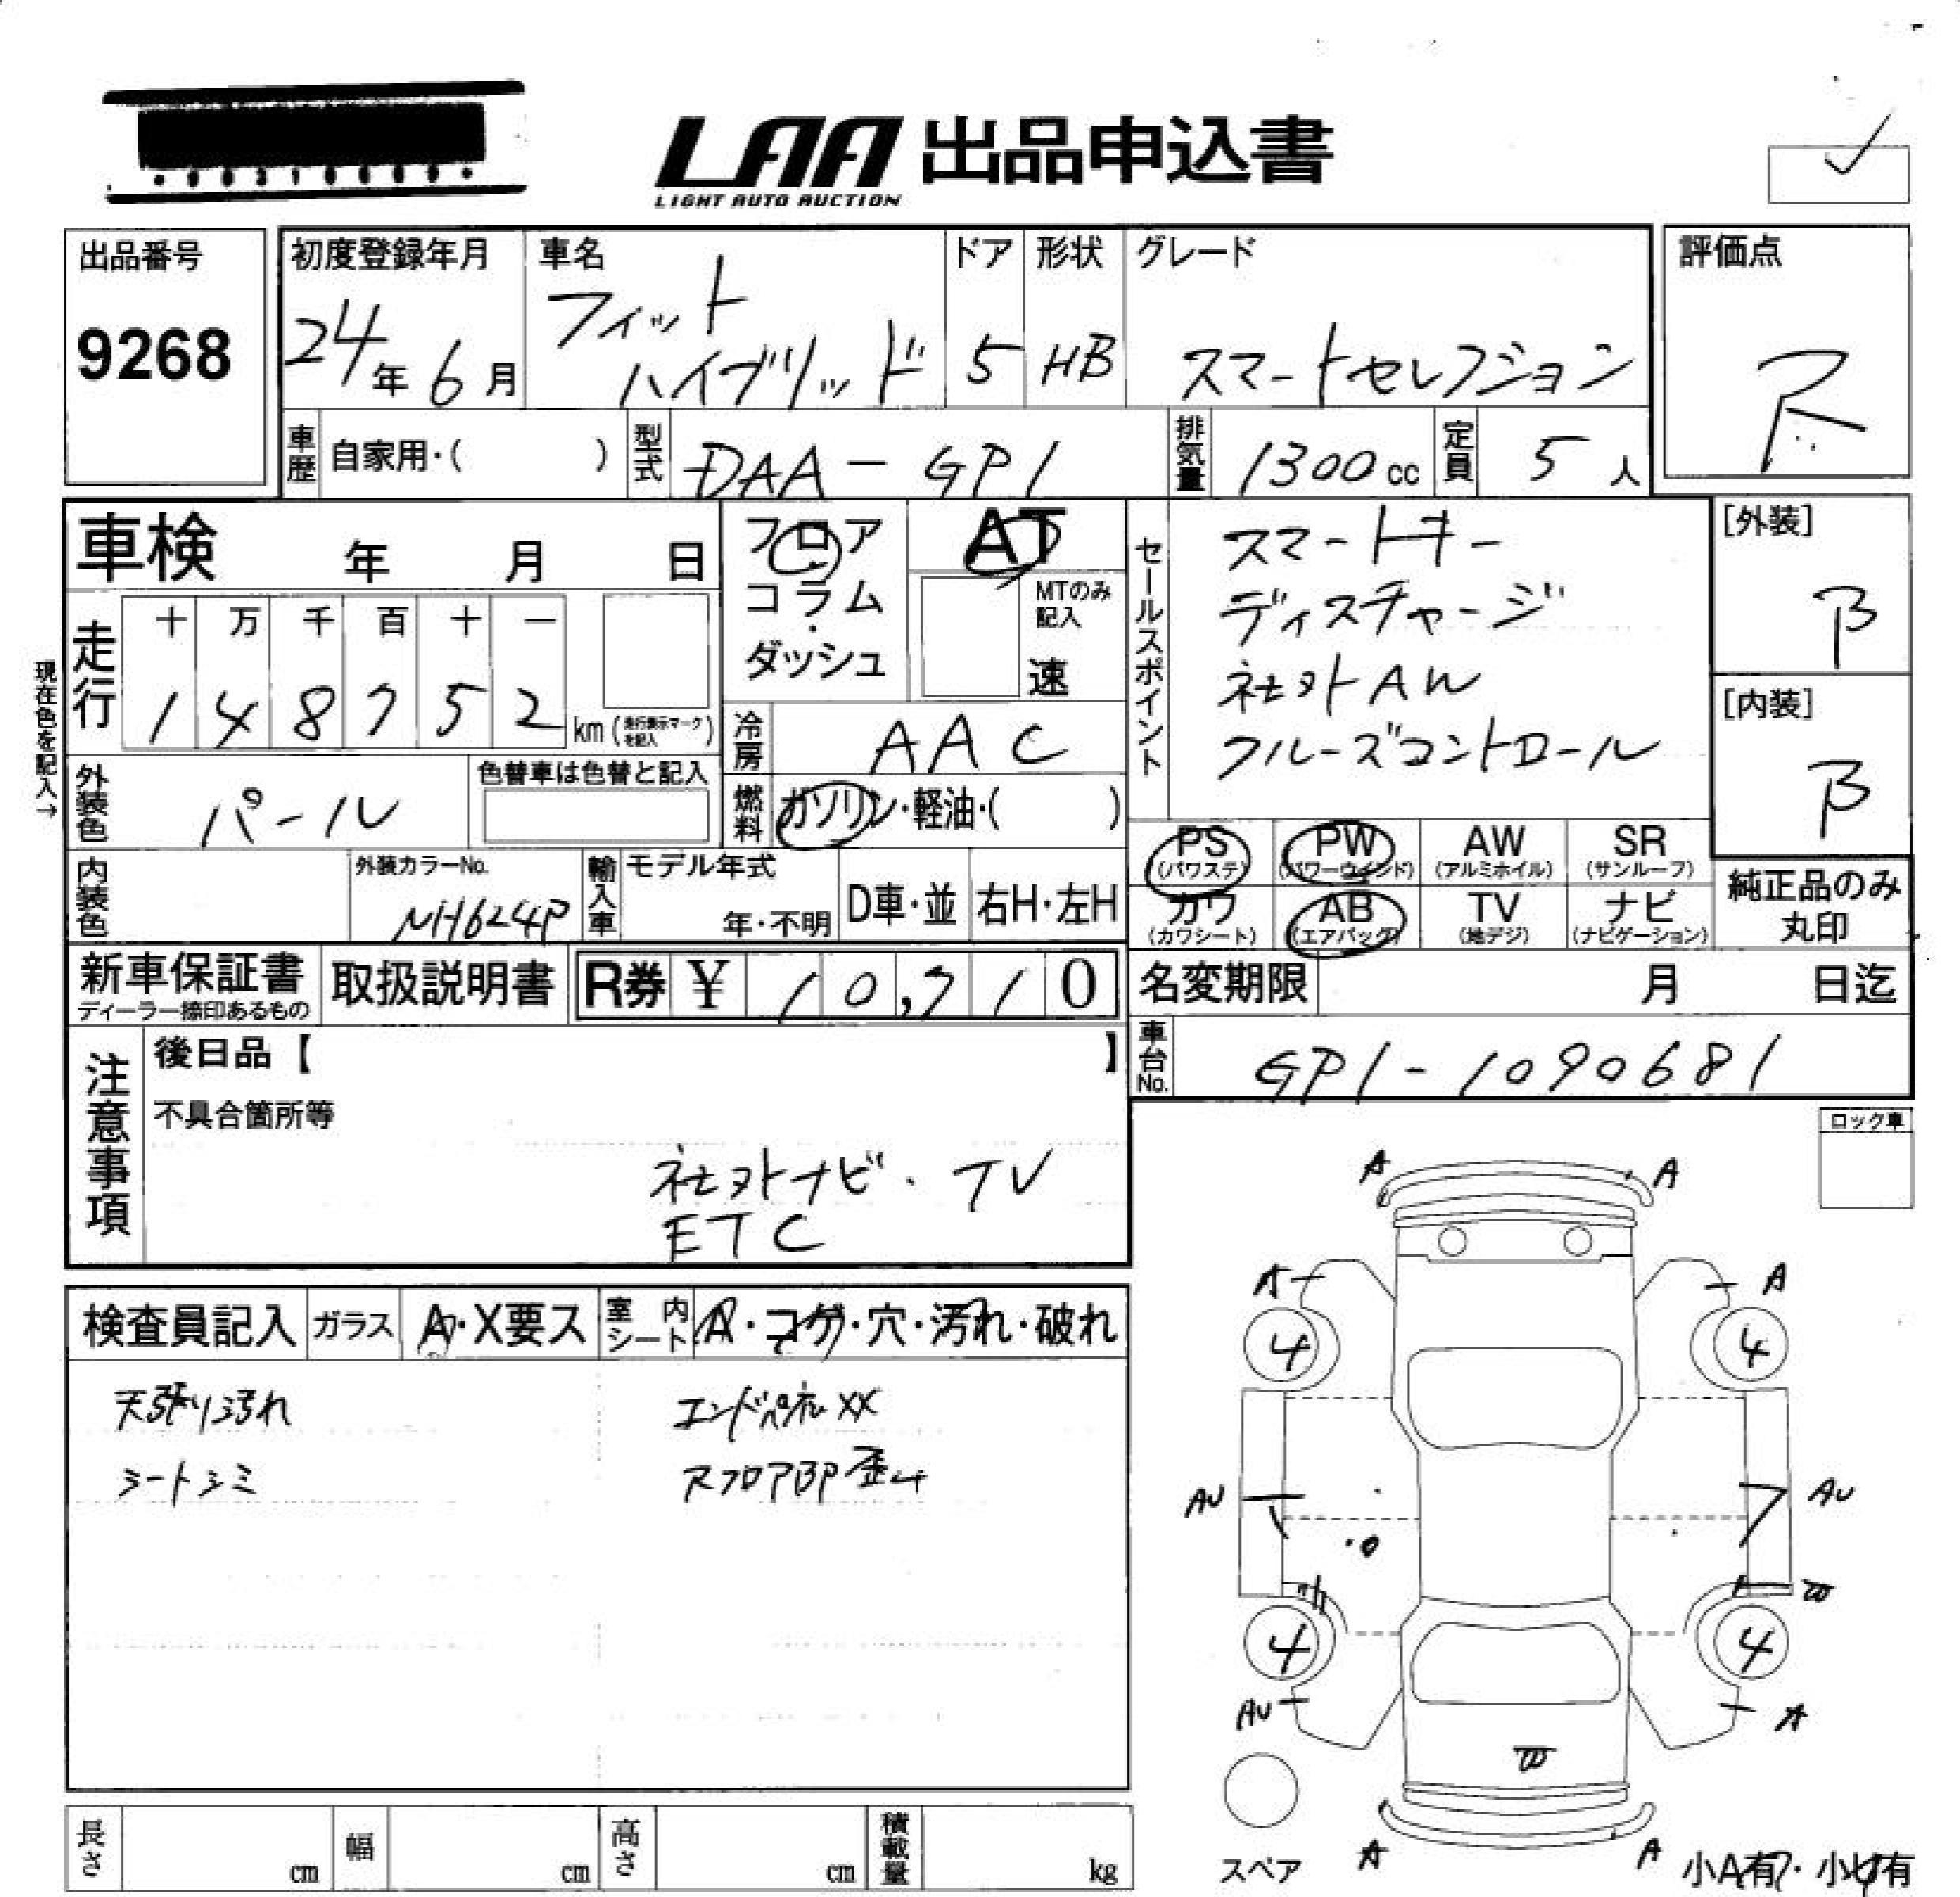 LAA 出品申込書
LIGHT AUTO AUCTION
出品番号
9268
初度登録年月
24年6月
車名
フィット
ハイブリッド
ドア
5
形状
HB
グレード
スマートセレクション
評価点
R
車歴 自家用・( )
型式 DAA-GP1
排気量 1300cc
定員 5人
車検 年 月 日
フロア・
コラム・
ダッシュ
AT
MTのみ
記入
速
セールスポイント
スマートキー
ディスチャージ
社外AW
クルーズコントロール
[外装]
B
[内装]
B
現在色を記入→
走行
十 万 千 百 十 一
1 4 8 7 5 2 km (走行表示マークを記入)
冷房 AAC
外装色 パール
色替車は色替と記入
燃料 ガソリン・軽油・( )
PS (パワステ)
PW (パワーウインド)
AW (アルミホイル)
SR (サンルーフ)
カワ (カワシート)
AB (エアバッグ)
TV (地デジ)
ナビ (ナビゲーション)
純正品のみ
丸印
内装色
外装カラーNo.
NH624P
輸入車
モデル年式
年・不明
D車・並
右H・左H
新車保証書
ディーラー捺印あるもの
取扱説明書
R券 ¥ 10,710
名変期限 月 日迄
車台No. GP1-1090681
注意事項
後日品【 】
不具合箇所等
社外ナビ・TV
ETC
ロック車
検査員記入
ガラス A・X要ス
室内シート A・コゲ・穴・汚れ・破れ
天張り汚れ
シートシミ
XX
A A
A A
4 4
AU AU
4 4
AU A
A A
スペア
小A有・小U有
長さ cm
幅 cm
高さ cm
積載量 kg